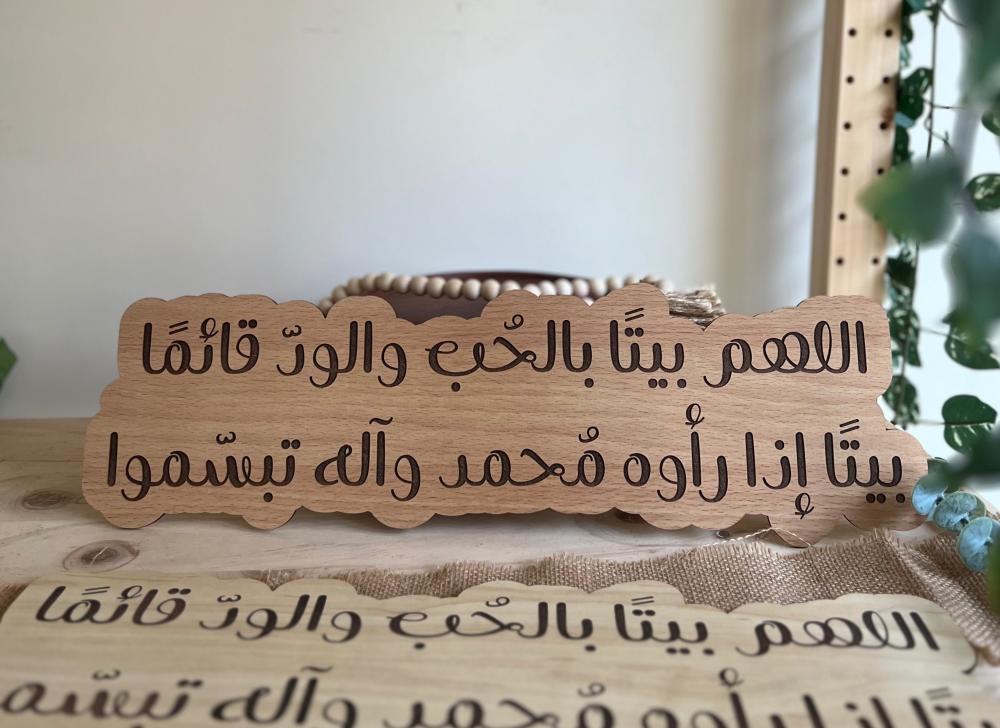 اللهم بيتًا بالحُب والودّ قائمًا
بيتًا إذا رأوه مُحمد وآله تبسّموا
اللهم بيتًا بالحُب والودّ قائمًا
بيتًا إذا رأوه مُحمد وآله تبسّمو